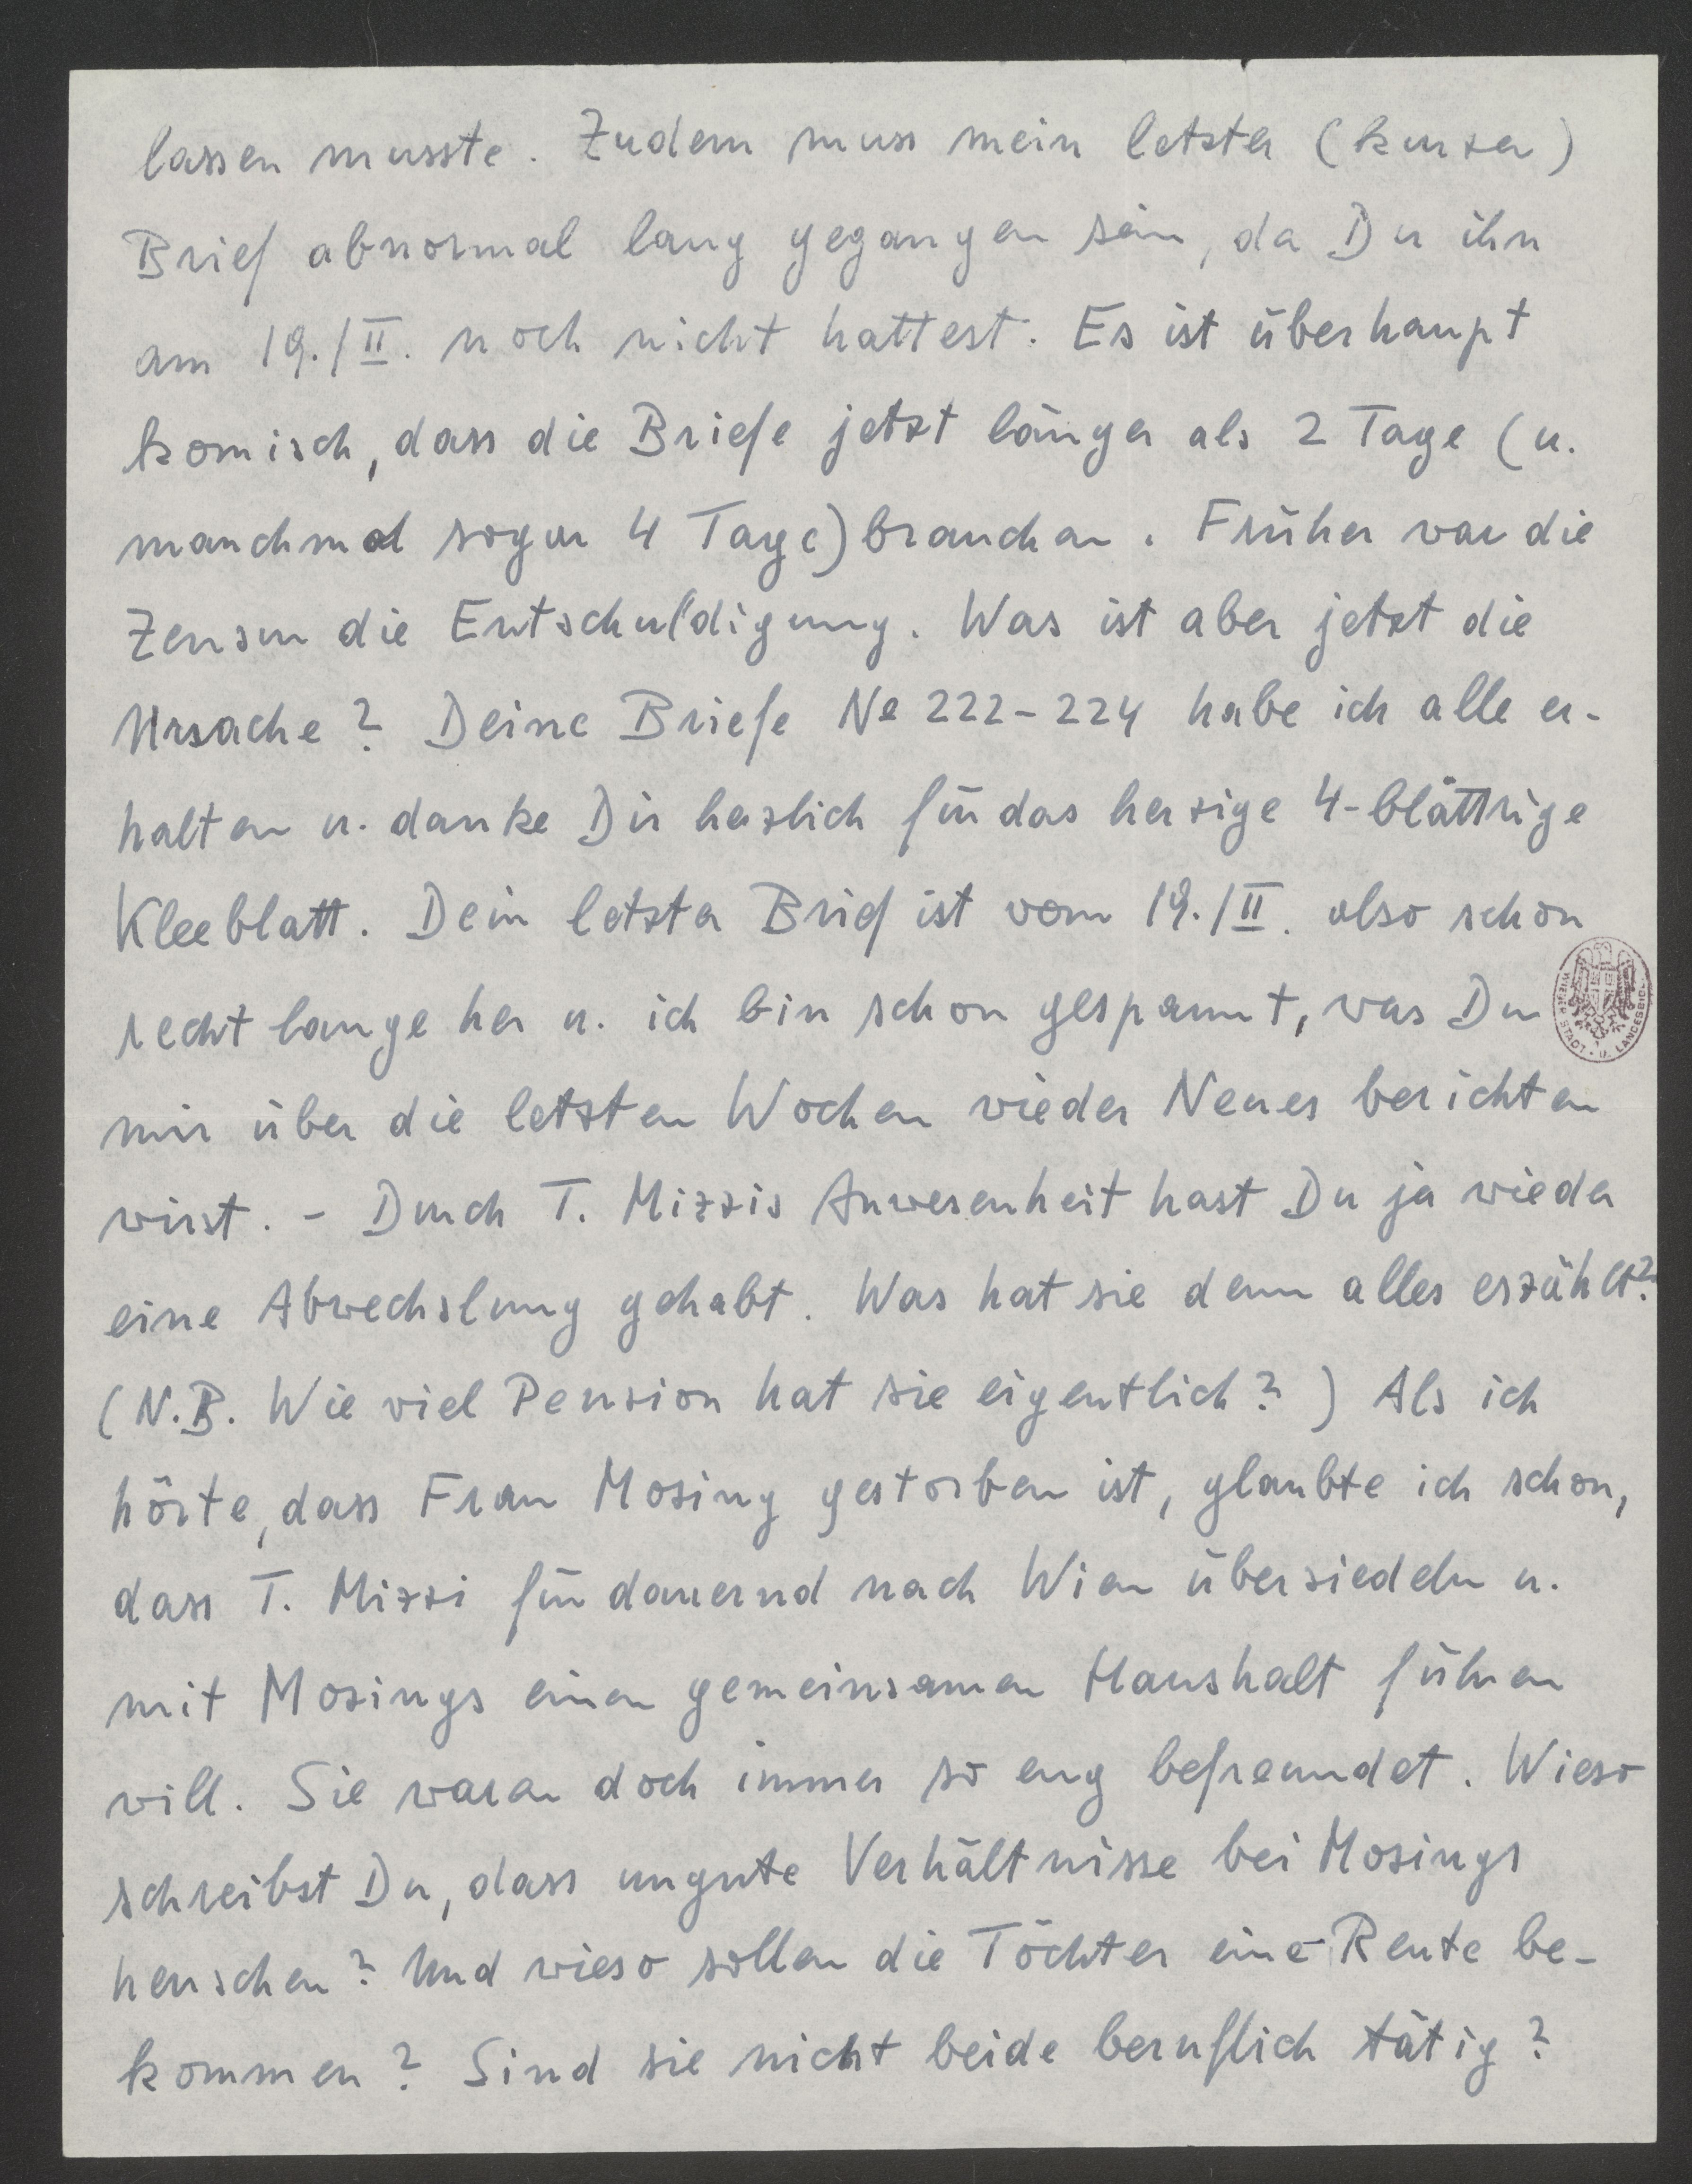 lassen musste. Zudem muss mein letzter (kurzer)
Brief abnormal lang gegangen sein, da Du ihn
am 19./II. noch nicht hattest. Es ist überhaupt
komisch, dass die Briefe jetzt länger als 2 Tage (u.
manchmal sogar 4 Tage) brauchen. Früher war die
Zensur die Entschuldigung. Was ist aber jetzt die
Ursache? Deine Briefe No 222-224 habe ich alle er-
halten u. danke Dir herzlich für das herzige 4-blättrige
Kleeblatt. Dein letzter Brief ist vom 19./II. also schon
recht lange her u. ich bin schon gespannt, was Du
mir über die letzten Wochen wieder Neues berichten
wirst. - Durch T. Mizzis Anwesenheit hast Du ja wieder
eine Abwechslung gehabt. Was hat sie denn alles erzählt?
(N.B. Wie viel Pension hat sie eigentlich?) Als ich
hörte, dass Frau Mosing gestorben ist, glaubte ich schon,
dass T. Mizzi für dauernd nach Wien übersiedeln u.
mit Mosings einen gemeinsamen Haushalt führen
will. Sie waren doch immer so eng befreundet. Wieso
schreibst Du, dass ungute Verhältnisse bei Mosings
herrschen? Und wieso sollen die Töchter eine Rente be-
kommen? Sind sie nicht beide beruflich tätig?
WIENER STADT- U. LANDESBIB.